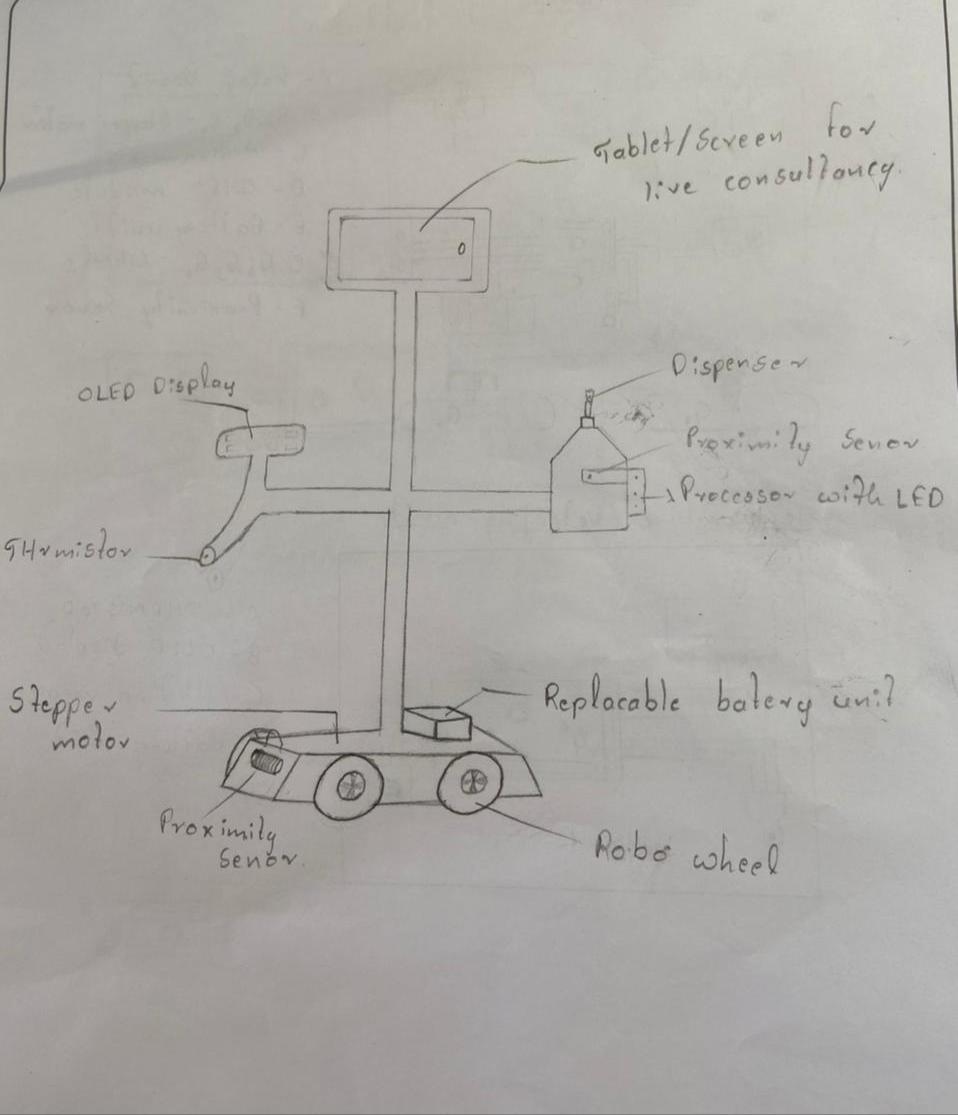 Tablet/Screen for
live consultancy.
OLED Display
Dispenser
Proximity Senor
Proccosor with LED
THrmistor
Stepper
motor
Replacable batery unit
Proximity
Senor.
Robo wheel